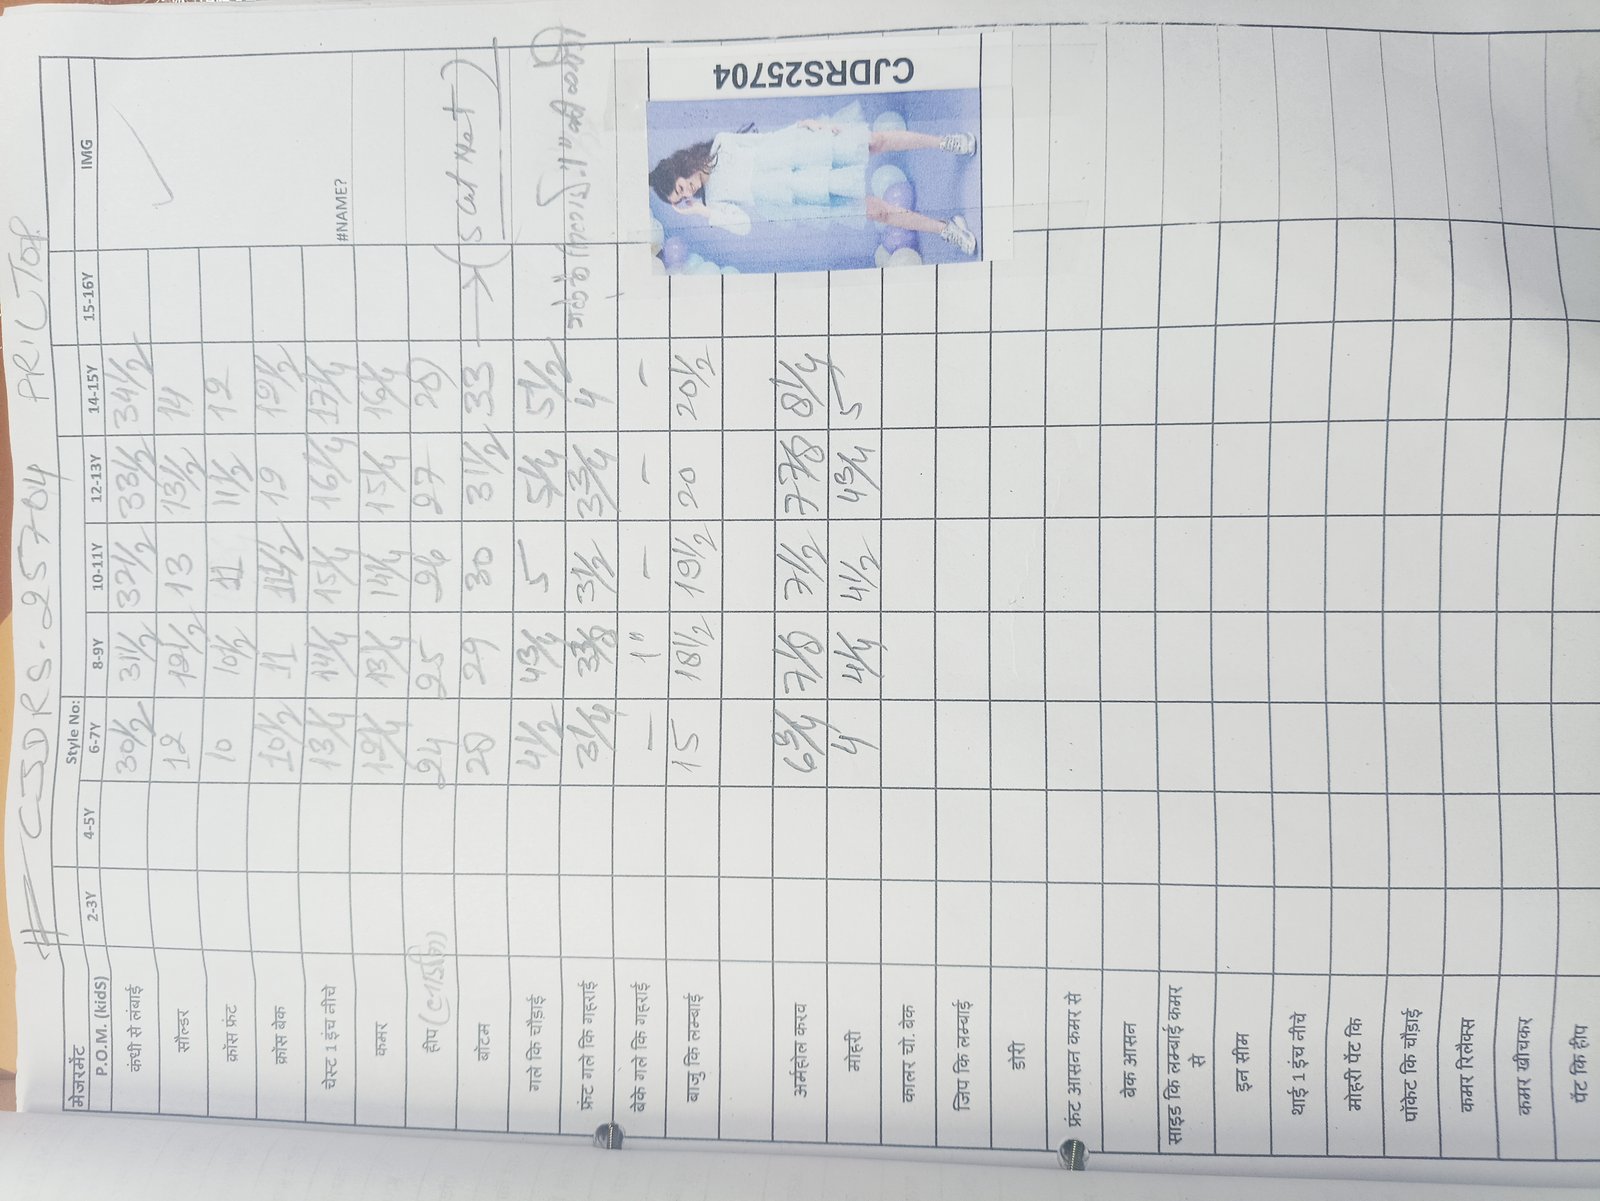 # CJDRS-25704 PRIL TOP
मेजरमेंट Style No:
P.O.M. (kidS) 2-3Y 4-5Y 6-7Y 8-9Y 10-11Y 12-13Y 14-15Y 15-16Y IMG
कंधी से लंबाई 30½ 31½ 32½ 33½ 34½
सौल्डर 12 12½ 13 13½ 14
क्रॉस फ्रंट 10 10½ 11 11½ 12
क्रॉस बेक 10½ 11 11½ 12 12½
चेस्ट 1 इंच नीचे 13¼ 14¼ 15¼ 16¼ 17¼ #NAME?
कमर 12¼ 13¼ 14¼ 15¼ 16¼
हीप 24 25 26 27 28
बॉटम 28 29 30 31½ 33 → (5 Cut Net)
गले कि चौड़ाई 4½ 4¾ 5 5¼ 5½
फ्रंट गले कि गहराई 3¼ 3⅜ 3½ 3¾ 4
बेके गले कि गहराई – 1" – – –
बाजु कि लम्बाई 15 18½ 19½ 20 20½
अर्महोल करव 6¾ 7⅛ 7½ 7⅞ 8¼
मोहरी 4 4¼ 4½ 4¾ 5
कालर चो. बेक
जिप कि लम्बाई
डोरी
फ्रंट आसन कमर से
बेक आसन
साइड कि लम्बाई कमर
से
इन सीम
थाई 1 इंच नीचे
मोहरी पेंट कि
पॉकेट कि चौड़ाई
कमर रिलैक्स
कमर खीचकर
पेंट कि हीप
CJDRS25704